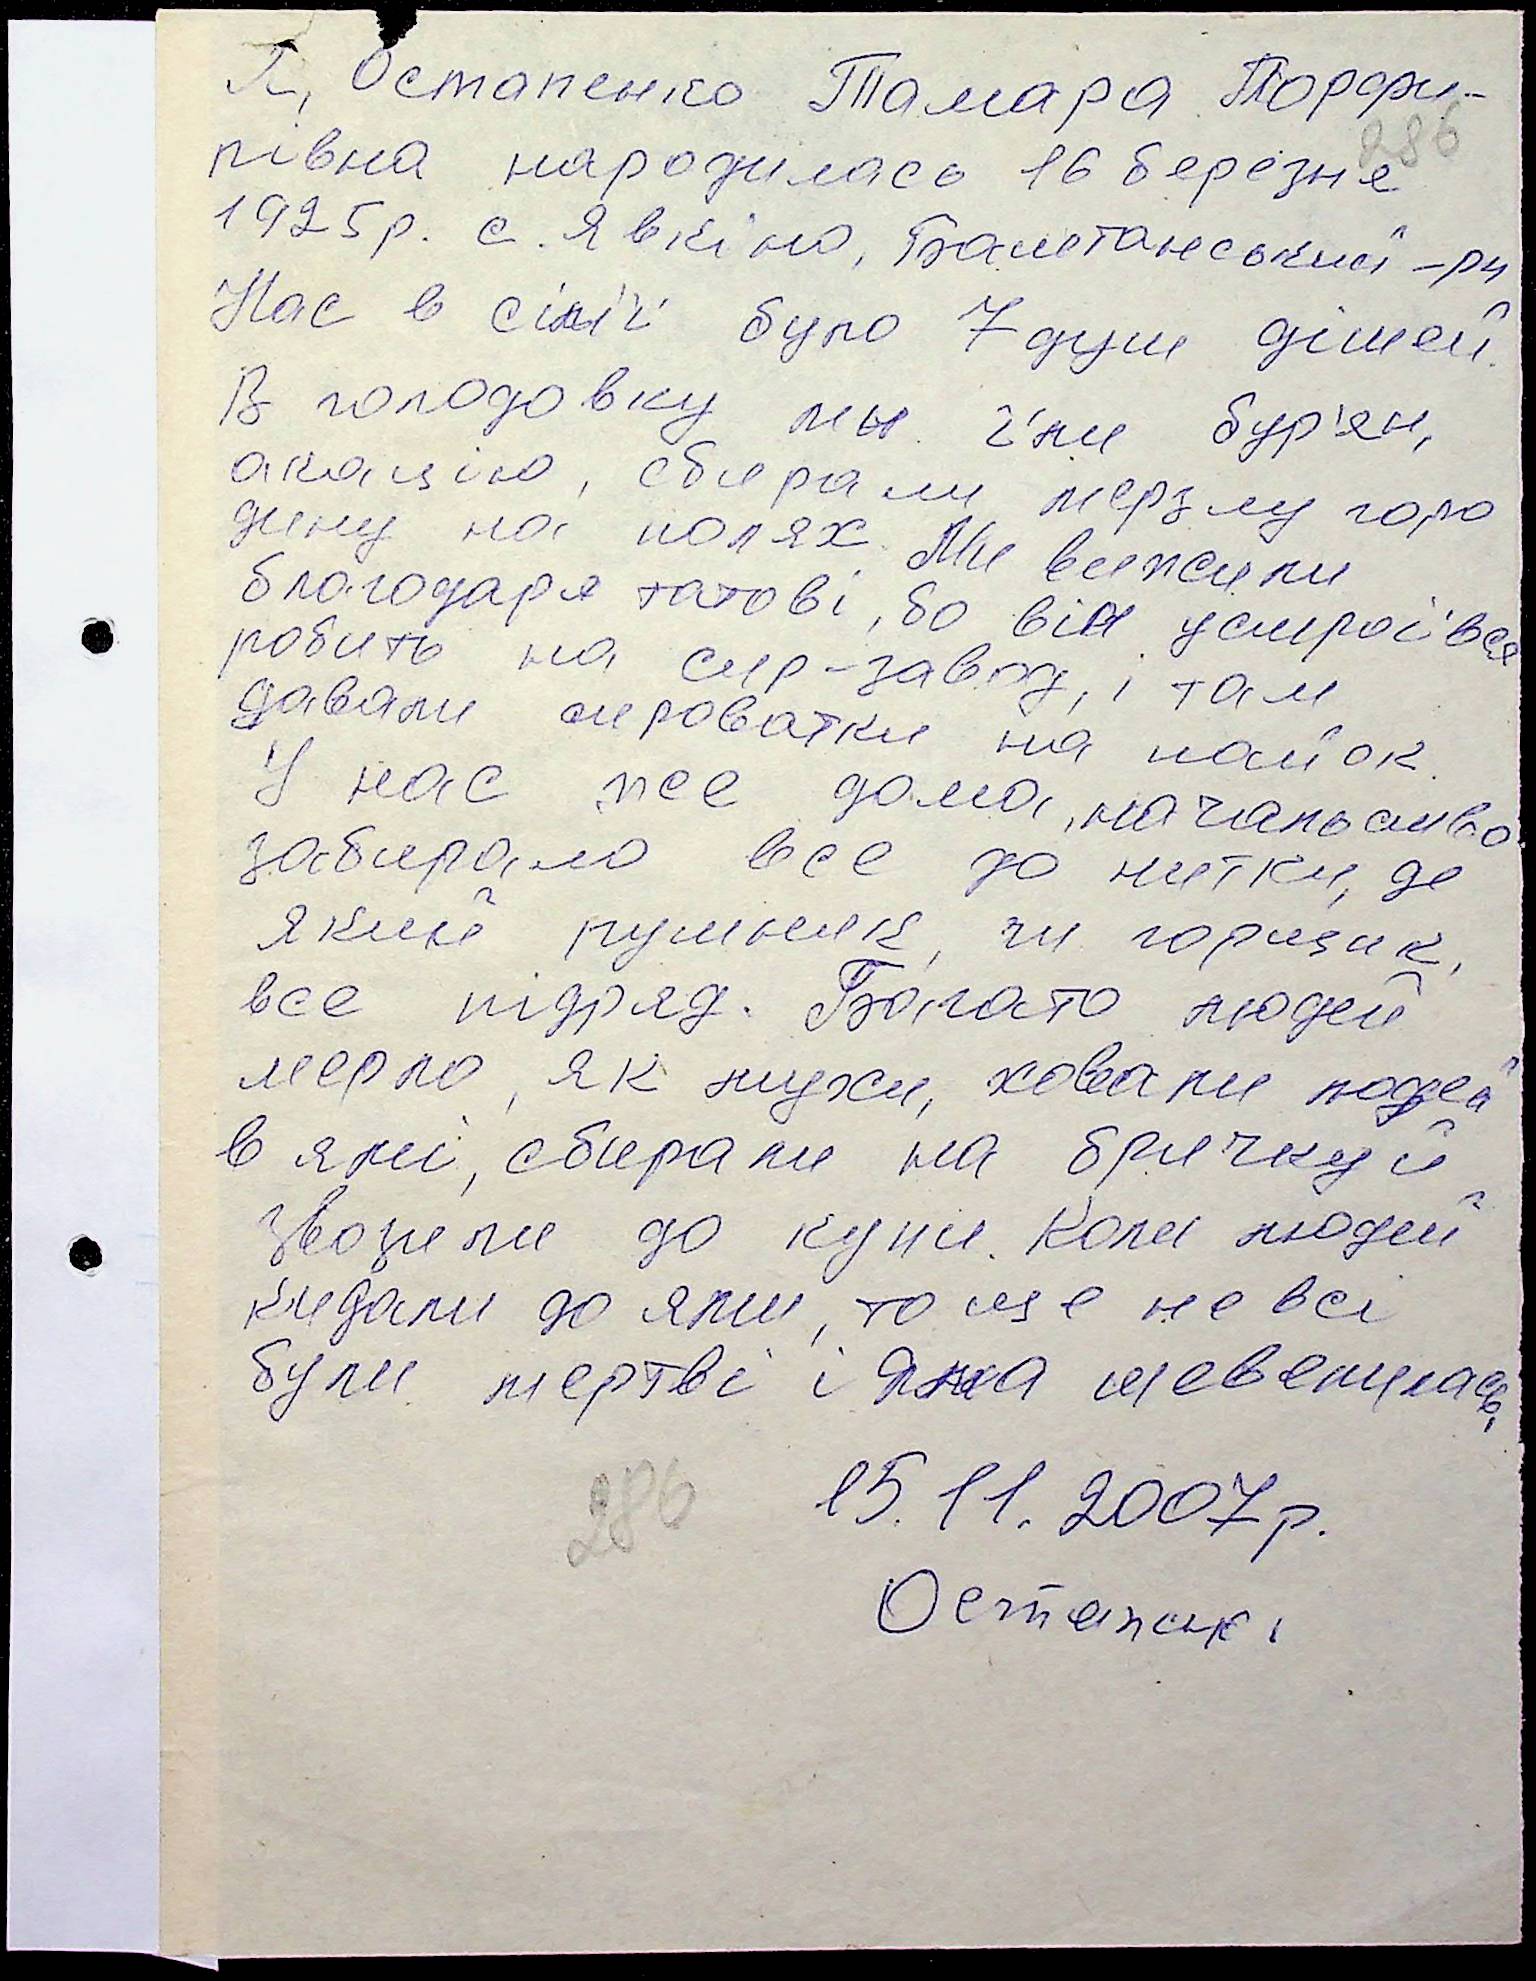 Я, Остапенко Тамара Порфи-
286
рівна народилась 16 березня
1925р. с. Явкіно, Баштанський р-н
Нас в сім'ї було 7 душ дітей.
В голодовку ми їли бур'ян,
акацію, сбирали мерзлу горо
дину на полях. Ми вижили
благодаря татові, бо він устроївся
робить на сир-завод, і там
давали сироватки на пайок.
У нас все дома, начальство
забирало все до нитки, де
який рушник, чи горщик,
все підряд. Багато людей
мерло, як мухи, ховали людей
в ямі, сбирали на бричку й
звозили до кучи. Коли людей
кидали до ями, то ще не всі
були мертві і яма шевелилась.
286
15.11.2007р.